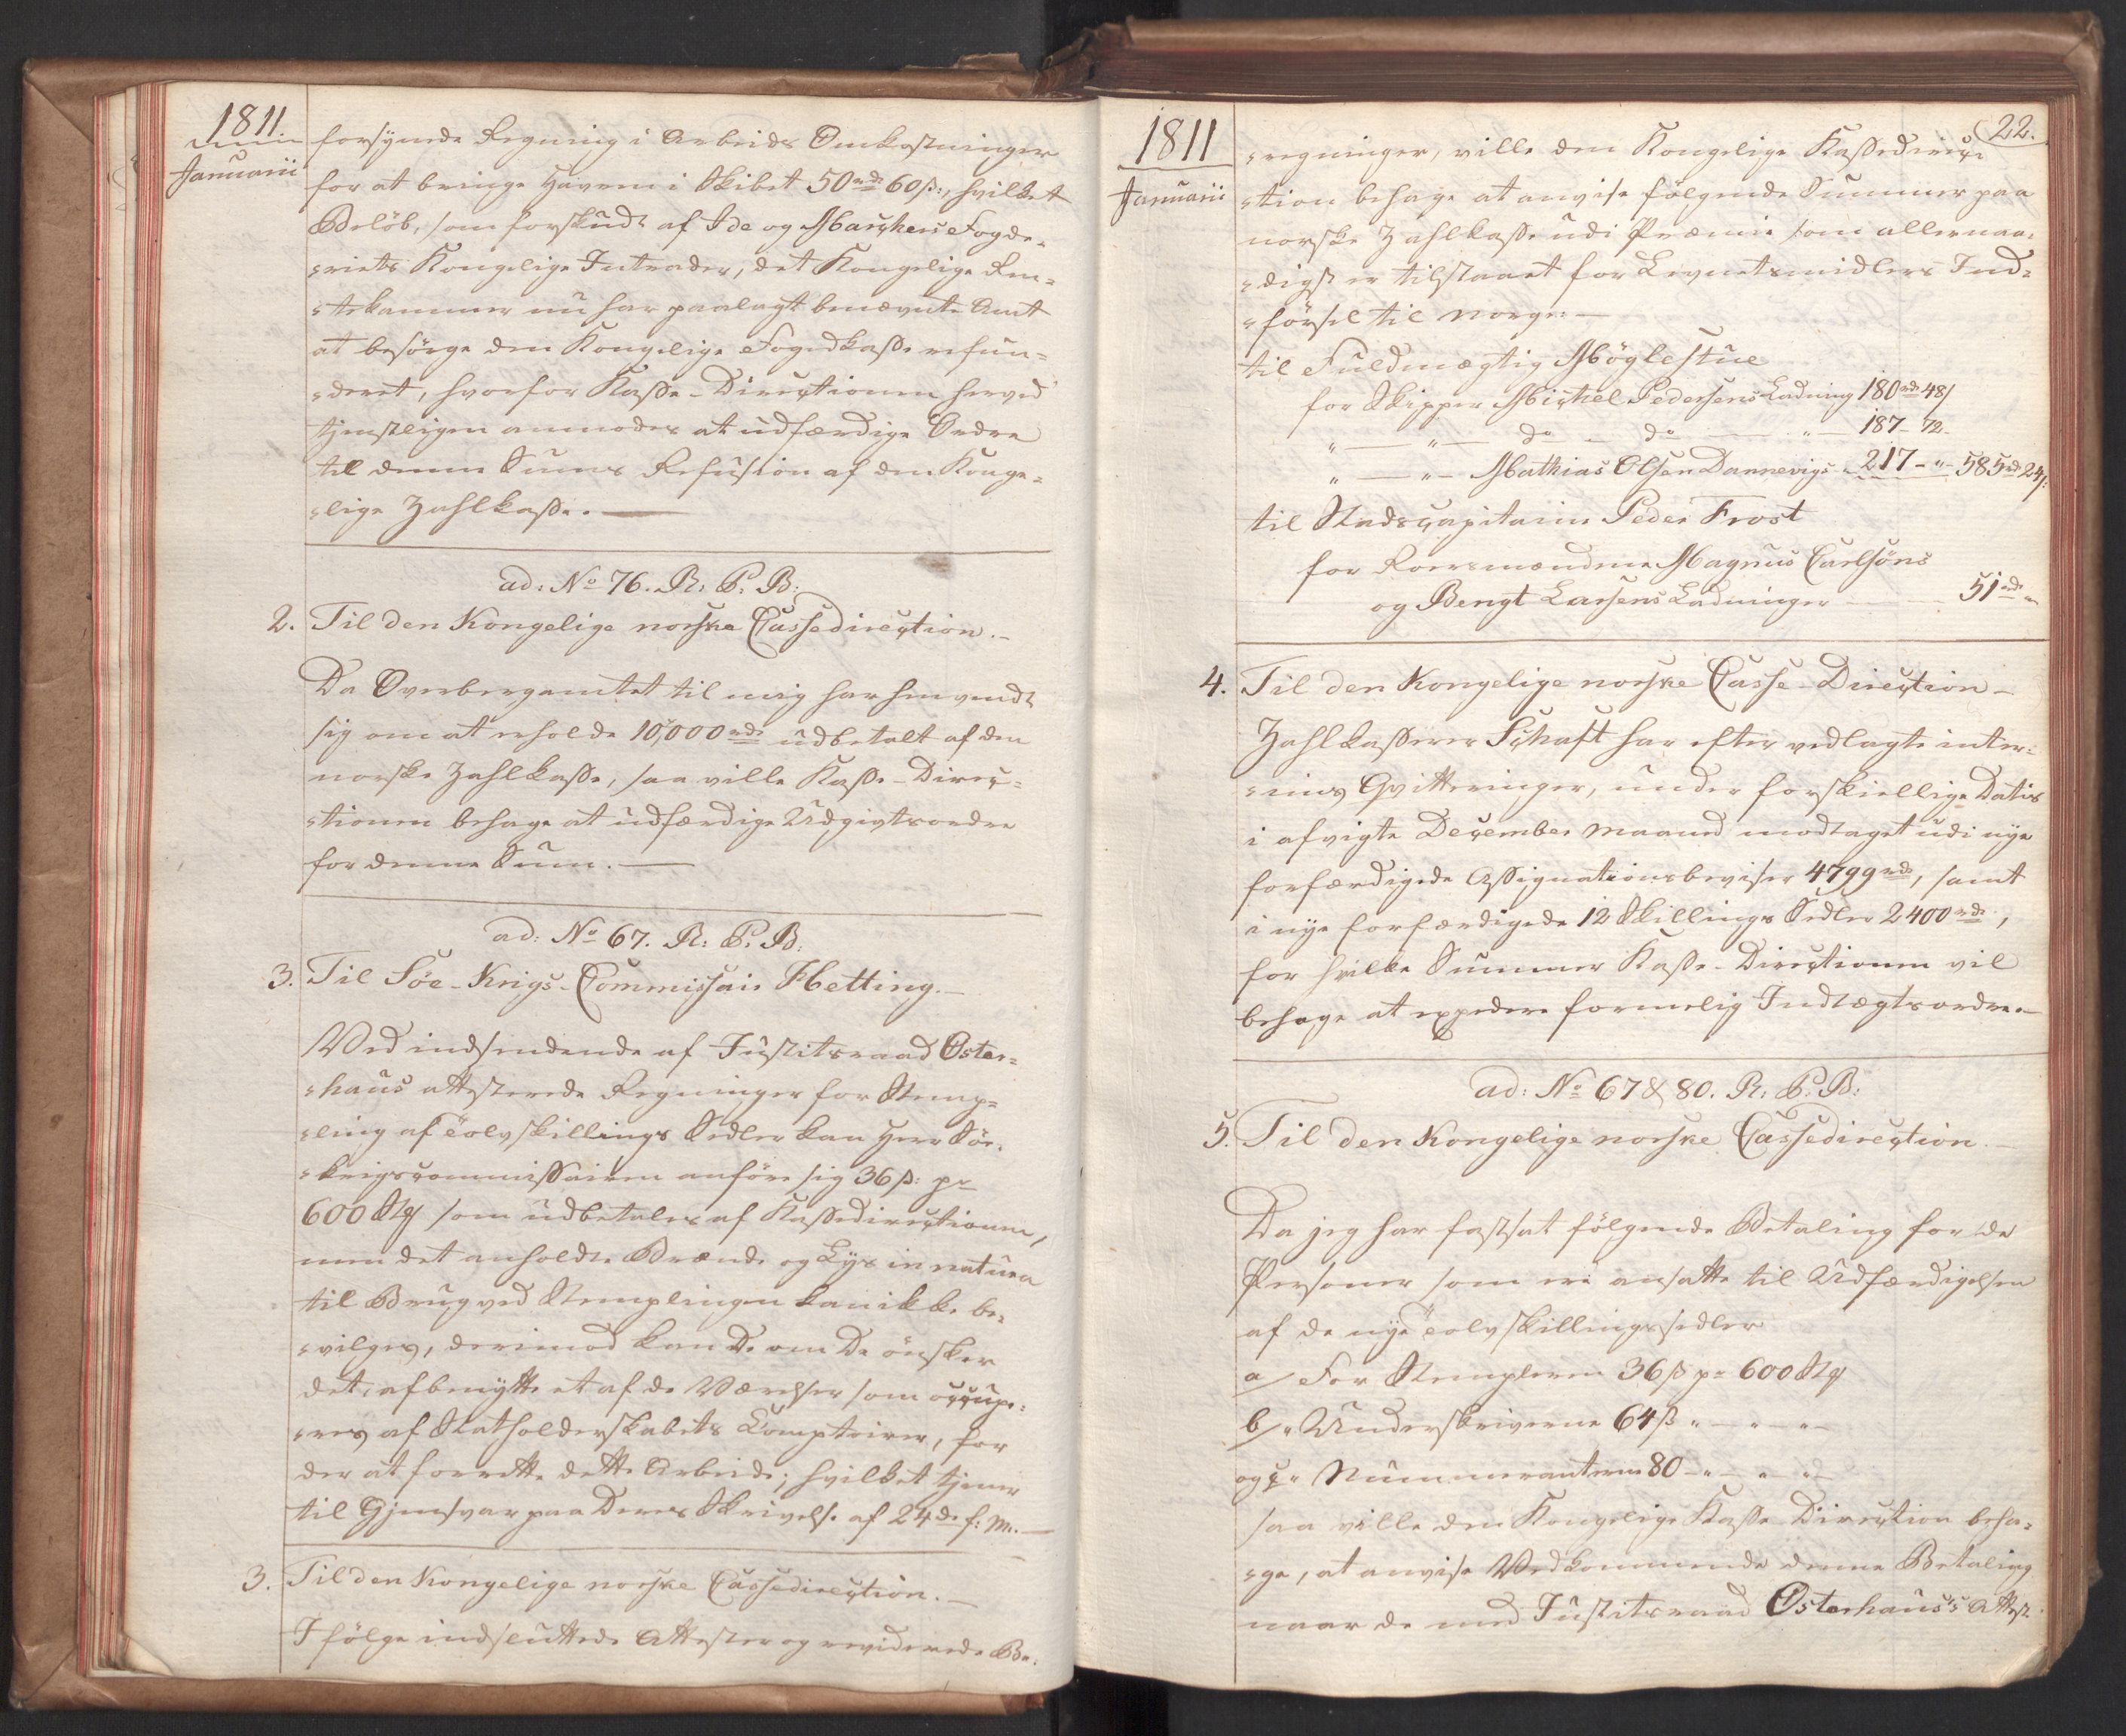 1811.
Januarii
forsynede Regning i Arbeids Omkostninger
for at bringe Havren i Skibet 50 rd 60 ß:, hvilket
Beløb, som forskudt af Ide og Marchers Fogde-
-riets Kongelige Intrader, det Kongelige Ren-
-tekammer nu har paalagt benævnte Amt
at besørge den Kongelige Fogedkasse refun-
-deret, hvorfor Kasse-Directionen herved
tjenstligen anmodes at udfærdige Ordre
til denne Sums Refusion af den Konge-
-lige Zahlkasse.
ad: No 76. R: P: B:
2. Til den Kongelige norske Cassedirection.
Da Overbergamtet til mig har henvendt
sig om at erholde 10,000 rd udbetalt af den
norske Zahlkasse, saa ville Kasse-Direc-
-tionen behage at udfærdige Udgivtsordre
for denne Sum.
ad: No 67. R: P: B:
3. Til Söe-Krigs-Commissair Hetting.
Ved indsendende af Justitsraad Oster-
-haus attesterede Regninger for Stemp-
-ling af tolvskillings Sedler kan Herr Söe-
-krigscommissairen anføre sig 36 ß: pr
600 Stk som udbetales af Kassedirectionen,
men det anholdte Brænde og Lys in natura
til Brug ved Stemplingen kan ikke be-
-vilges, derimod kan De om De önsker
det, afbenytte et af de Værelser som occupe-
-res af Statholderskabets Comptoirer, for
der at forrette dette Arbeide; hvilket tjener
til Gjensvar paa Deres Skrivelse af 24de f: M.
3. Til den Kongelige norske Cassedirection.
I følge indsluttede Attester og reviderede Be-
22.
1811
Januarii
-regninger, ville den Kongelige Kassedirec-
-tion behage at anvise følgende Summer paa
norske Zahlkasse udi Præmie som allernaa-
-digst er tilstaaet for Levnetsmidlers Ind-
-førsel til Norge:
til Fuldmægtig Möglestue
for Skipper Michel Pedersens Ladning 180 rd 48 ß
" — " — do — do — " — 187 - 72 -
" — " — Mathias Olsen Dannevigs " 217 - " - 585 rd 24 ß:
til Stadscapitain Peder Frost
for Roersmændene Magnus Carlsöns
og Bengt Larsens Ladninger — 51 rd "
4. Til den Kongelige norske Casse-Direction
Zahlkasserer Schaft har efter vedlagte inter-
-ims Qvitteringer, under forskiellige Datis
i afvigte December Maaned modtaget udi nye
forfærdigede Assignationsbeviser 4799 rd, samt
i nye forfærdigede 12 Skillings Sedler 2400 rd,
for hvilke Summer Kasse-Directionen vil
behage at expedere formelig Indtægtsordre.
ad: No 67 & 80. R: P: B:
5. Til den Kongelige norske Cassedirection.
Da jeg har fastsat følgende Betaling for de
Personer som ere ansatte til Udfærdigelsen
af de nye tolvskillingssedler
a/ For Stempleren 36 ß pr 600 Stk
b/ " Underskriverne 64 ß " — " — "
og c " Nummeranterne 80 - " — " — "
saa ville den Kongelige Kasse Direction beha-
-ge, at anvise Vedkommende denne Betaling
naar de med Justitsraad Osterhaus's Attest